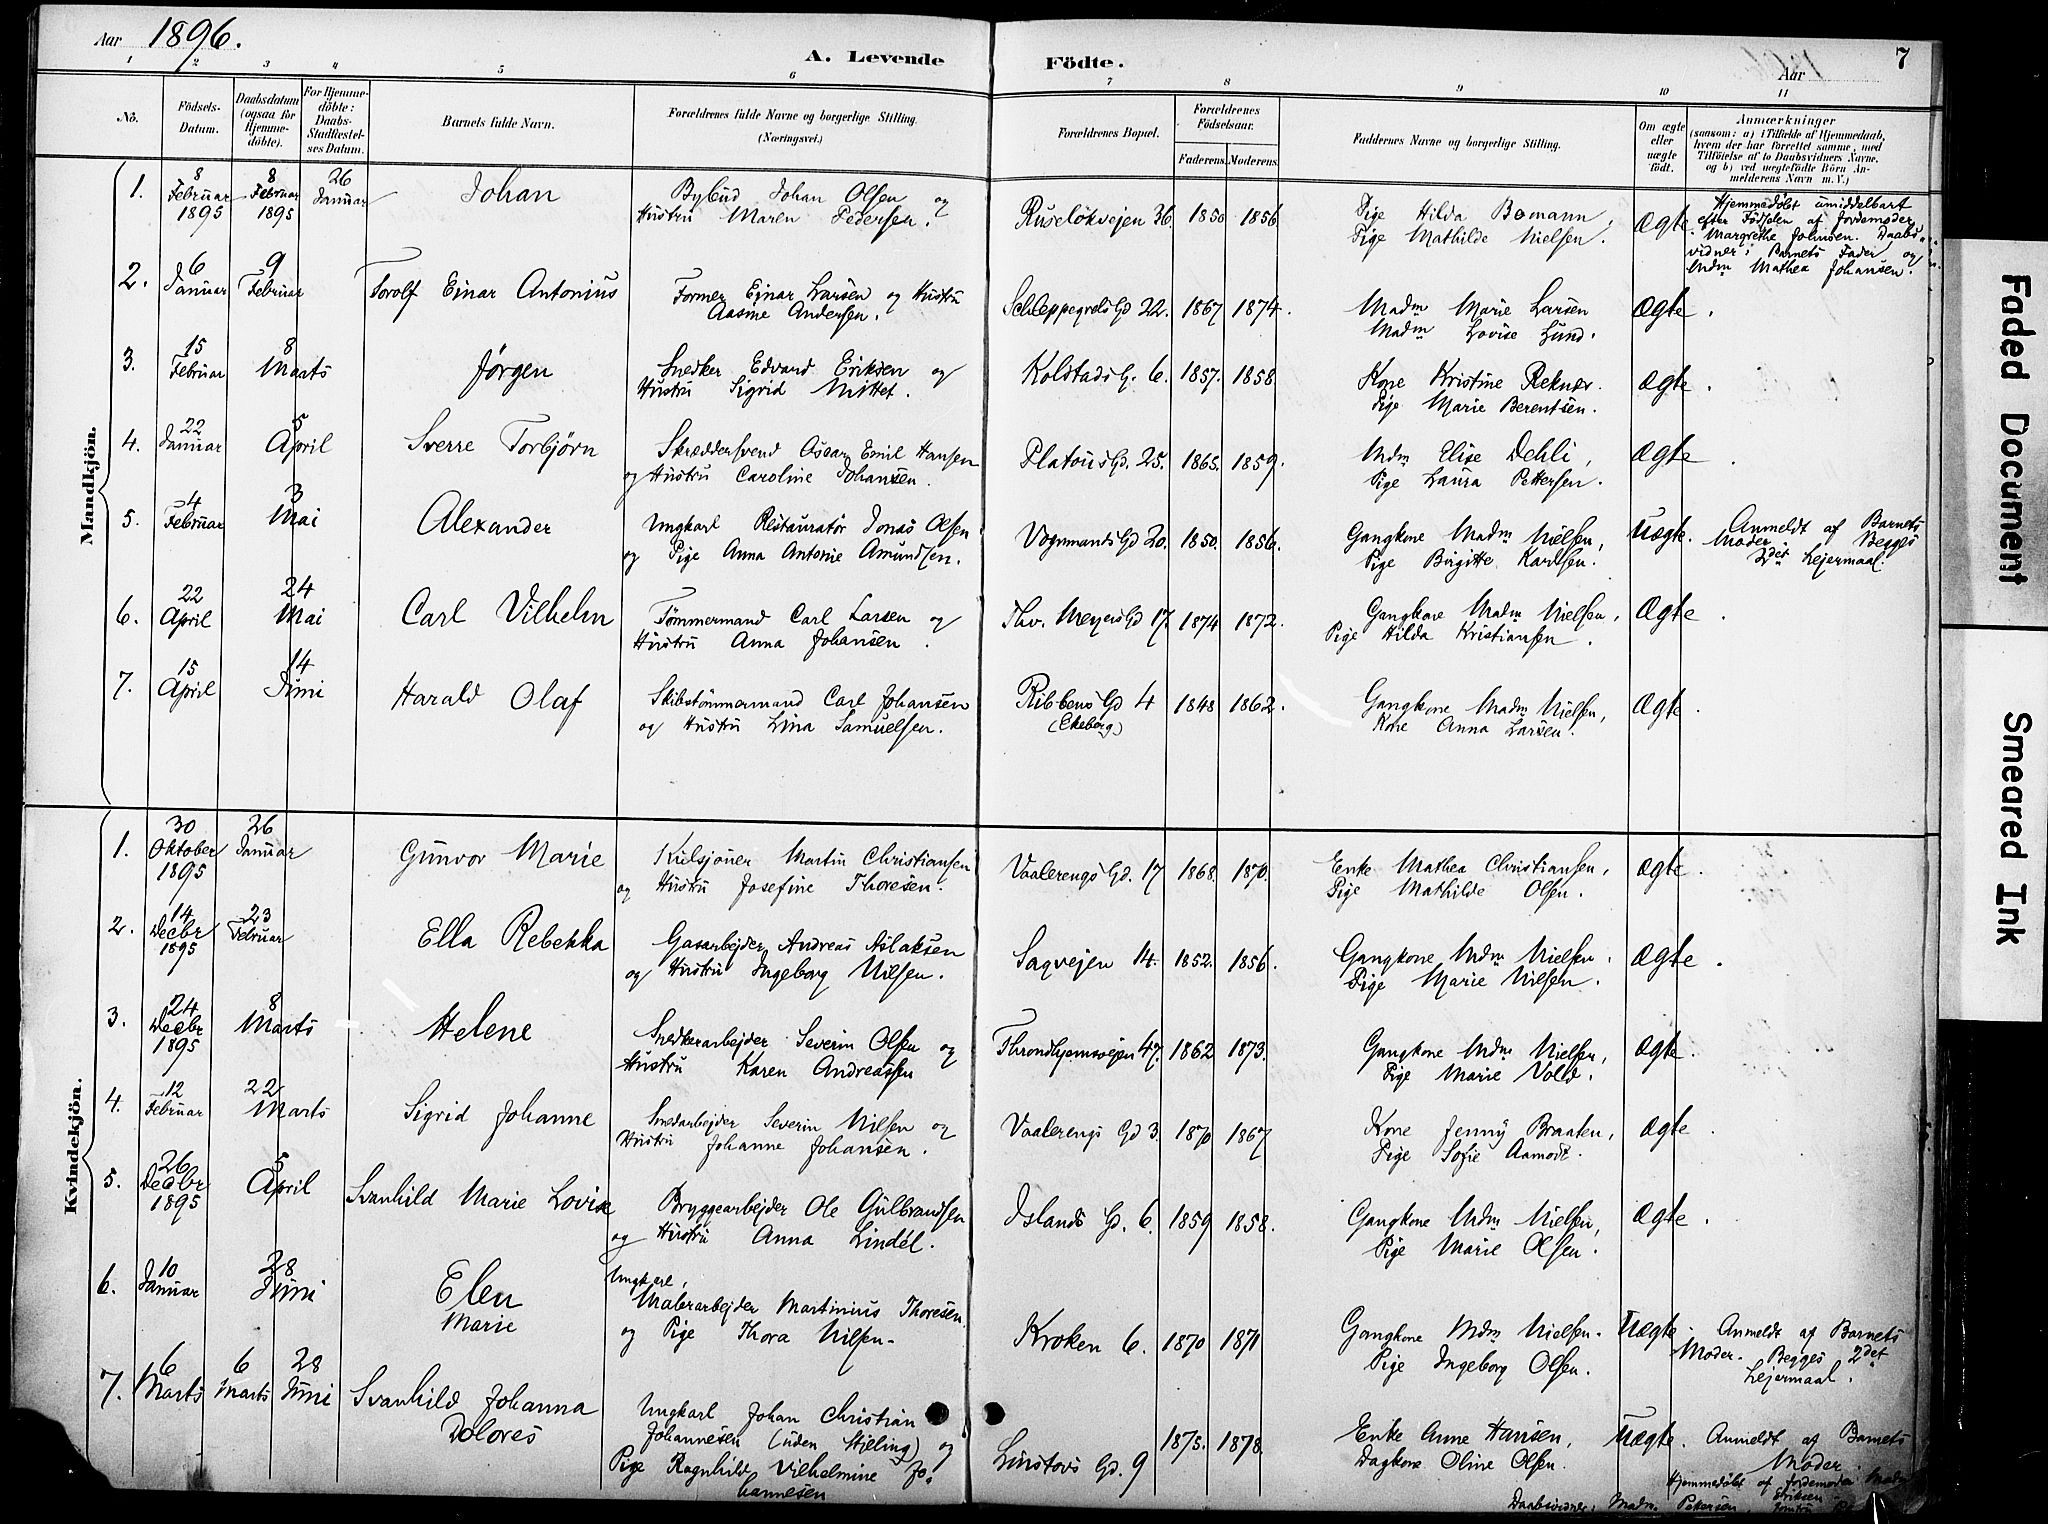 Aar 1896.
A. Levende Födte.
7
Aar
1 2 3 4 5 6 7 8 9 10 11
No. Födsels-Datum. Daabsdatum (ogsaa for Hjemme-döbte). For Hjemme-döbte: Daabs-Stadfæstel-ses Datum. Barnets fulde Navn. Forældrenes fulde Navne og borgerlige Stilling. (Næringsvei.) Forældrenes Bopæl. Forældrenes Födselsaar. Faderens. Moderens. Faddernes Navne og borgerlige Stilling. Om ægte eller uægte födt. Anmærkninger (saasom: a) i Tilfælde af Hjemmedaab, hvem der har forrettet samme, med Tilföielse af to Daabsvidners Navne, og b) ved uægtefödte Börn An-melderens Navn m. V.)
Mandkjön.
1. 8 Februar 1895 8 Februar 1895 26 Januar Johan Bybud Johan Olsen og
Hustru Maren Pedersen. Ruseløkvejen 36. 1850 1856. Pige Hilda Bomann,
Pige Mathilde Nielsen. Ægte Hjemmedøbt umiddelbart
efter Fødselen af Jordemoder
Margrethe Johnsen. Daabs-
vidner: Barnets Fader og
Mdm Mathea Johansen.
2. 6 Januar 9 Februar Torolf Einar Antonius Former Einar Larsen og Hustru
Aasine Andersen. Schleppegrels Gd 22. 1867 1874. Madm Marie Larsen
Madm Lovise Lund. Ægte.
3. 15 Februar 8 Marts Jørgen Snedker Edvard Eriksen og
Hustru Sigrid Mittet. Kolstads G. 6. 1857. 1858. Kone Kristine Reknær.
Pige Marie Berentsen. Ægte.
4. 22 Januar 5 April Sverre Torbjørn Skræddersvend Oscar Emil Hansen
og Hustru Caroline Johansen. Platous Gd. 25. 1865. 1859. Mdm Elise Dehli,
Pige Laura Pettersen. Ægte.
5. 4 Februar 3 Mai Alexander Ungkarl Restauratør Jonas Olsen
og Pige Anna Antonie Amundsen. Vognmands Gd 20. 1850. 1856. Gangkone Madm Nielsen,
Pige Birgitte Karlsen. Uægte. Anmeldt af Barnets
Moder. Begges
2det Lejermaal.
6. 22 April 24 Mai Carl Vilhelm Tømmermand Carl Larsen og
Hustru Anna Johansen. Thv. Meyers Gd 17. 1874 1872. Gangkone Madm Nielsen,
Pige Hilda Kristiansen. Ægte.
7. 15 April 14 Juni Harald Olaf Skibstømmermand Carl Johansen
og Hustru Lina Samuelsen. Ribbens Gd 4
(Ekeberg) 1848 1862. Gangkone Madm Nielsen,
Kone Anna Larsen. Ægte.
Kvindekjön.
1. 30 Oktober 1895 26 Januar Gunvor Marie Kulsjouer Martin Christiansen
og Hustru Josefine Thoresen. Vaalerengs Gd. 17 1868. 1870. Enke Mathea Christiansen,
Pige Mathilde Olsen. Ægte.
2. 14 Decbr 1895 23 Februar Ella Rebekka Gasarbejder Andreas Aslaksen
og Hustru Ingeborg Nilsen. Sagvejen 14. 1852. 1856. Gangkone Mdm Nielsen,
Pige Marie Nilsen. Ægte.
3. 24 Decbr 1895 8 Marts Helene Snedkerarbejder Severin Olsen og
Hustru Karen Andreassen Throndhjemsvejen 47. 1862 1873. Gangkone Mdm Nielsen,
Pige Marie Vold. Ægte.
4. 12 Februar 22 Marts Sigrid Johanne Smedarbejder Severin Nilsen og
Hustru Johanne Johansen. Vaalerengs Gd 3. 1870 1867 Kone Jenny Braaten,
Pige Sofie Aamodt. Ægte.
5. 26 Decbr 1895 5 April Svanhild Marie Lovise Bryggearbejder Ole Gulbrandsen
og Hustru Anna Lindél. Islands Gd. 6. 1859 1858. Gangkone Mdm Nielsen,
Pige Marie Olsen. Ægte.
6. 10 Januar 28 Juni Elen
Marie Ungkarl,
Malerarbejder Martinius Thoresen
og Pige Thora Nilsen. Kroken 6. 1870 1871 Gangkone Mdm Nielsen.
Pige Ingeborg Olsen. Uægte. Anmeldt af Barnets
Moder. Begges 2det
Lejermaal.
7. 6 Marts 6 Marts 28 Juni Svanhild Johanna
Dolores Ungkarl Johan Christian
Johannesen (uden Stilling) og
Pige Ragnhild Vilhelmine Jo-
hannesen Linstovs Gd. 9 1875. 1878. Enke Anne Hansen,
Dagkone Oline Olsen. Uægte. Anmeldt af Barnets
Moder
Hjemmedøbt af Jordemoder Madm
Eriksen
Daabsvidner: Madm. Petersen,
Faded Document
Smeared Ink